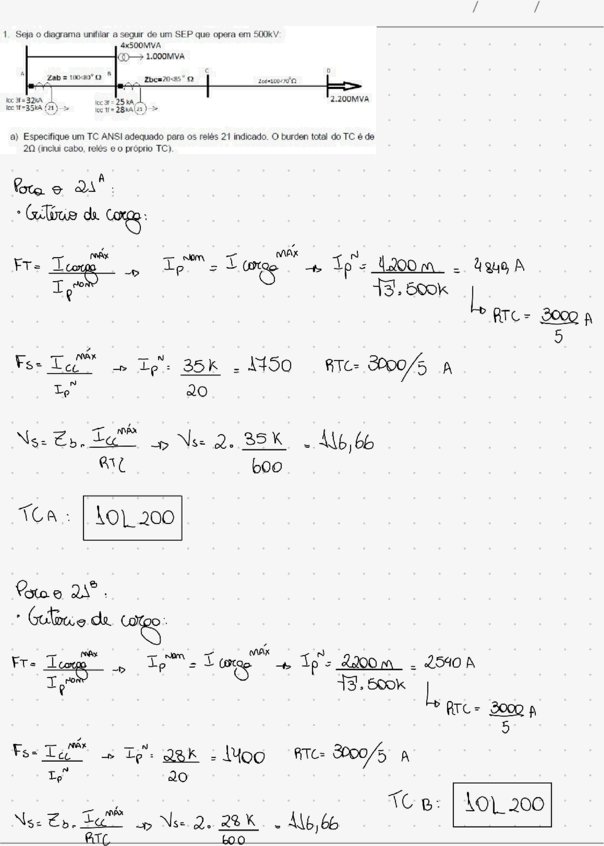 / /
1. Seja o diagrama unifilar a seguir de um SEP que opera em 500kV:
4x500MVA
1.000MVA
A B C D
Zab = 100<80° Ω Zbc=20<85° Ω Zcd=100<70°Ω
Icc 3f = 32kA
Icc 1f=35kA 21
Icc 3f = 25 kA
Icc 1f = 28kA 21
2.200MVA
a) Especifique um TC ANSI adequado para os relés 21 indicado. O burden total do TC é de
2Ω (inclui cabo, relés e o próprio TC).
Para o 21ᴬ:
• Critério de carga:
FT = I carga ᴹÁˣ / Ip ᴺᴼᴹ → Ip ᴺᴼᴹ = I carga ᴹÁˣ → Ipᴺ = 4.200M / √3.500k = 4849 A
↳ RTC = 3000/5 A
Fs = Icc ᴹáˣ / Ipᴺ → Ipᴺ = 35k / 20 = 1750 RTC = 3000/5 A
Vs = Zb. Icc ᴹáˣ / RTC → Vs = 2. 35k / 600 = 116,66
TC A: 10L 200
Para o 21ᴮ:
• Criterio de cargo:
FT = I carga ᴹᴬˣ / Ip ᴺᴼᴹ → Ip ᴺᵒᵐ = I carga ᴹÁˣ → Ipᴺ = 2200M / √3.500k = 2540 A
↳ RTC = 3000/5 A
Fs = Icc ᴹáˣ / Ipᴺ → Ipᴺ = 28k / 20 = 1400 RTC = 3000/5 A
TC B: 10L 200
Vs = Zb. Icc ᴹáˣ / RTC → Vs = 2. 28k / 600 = 116,66